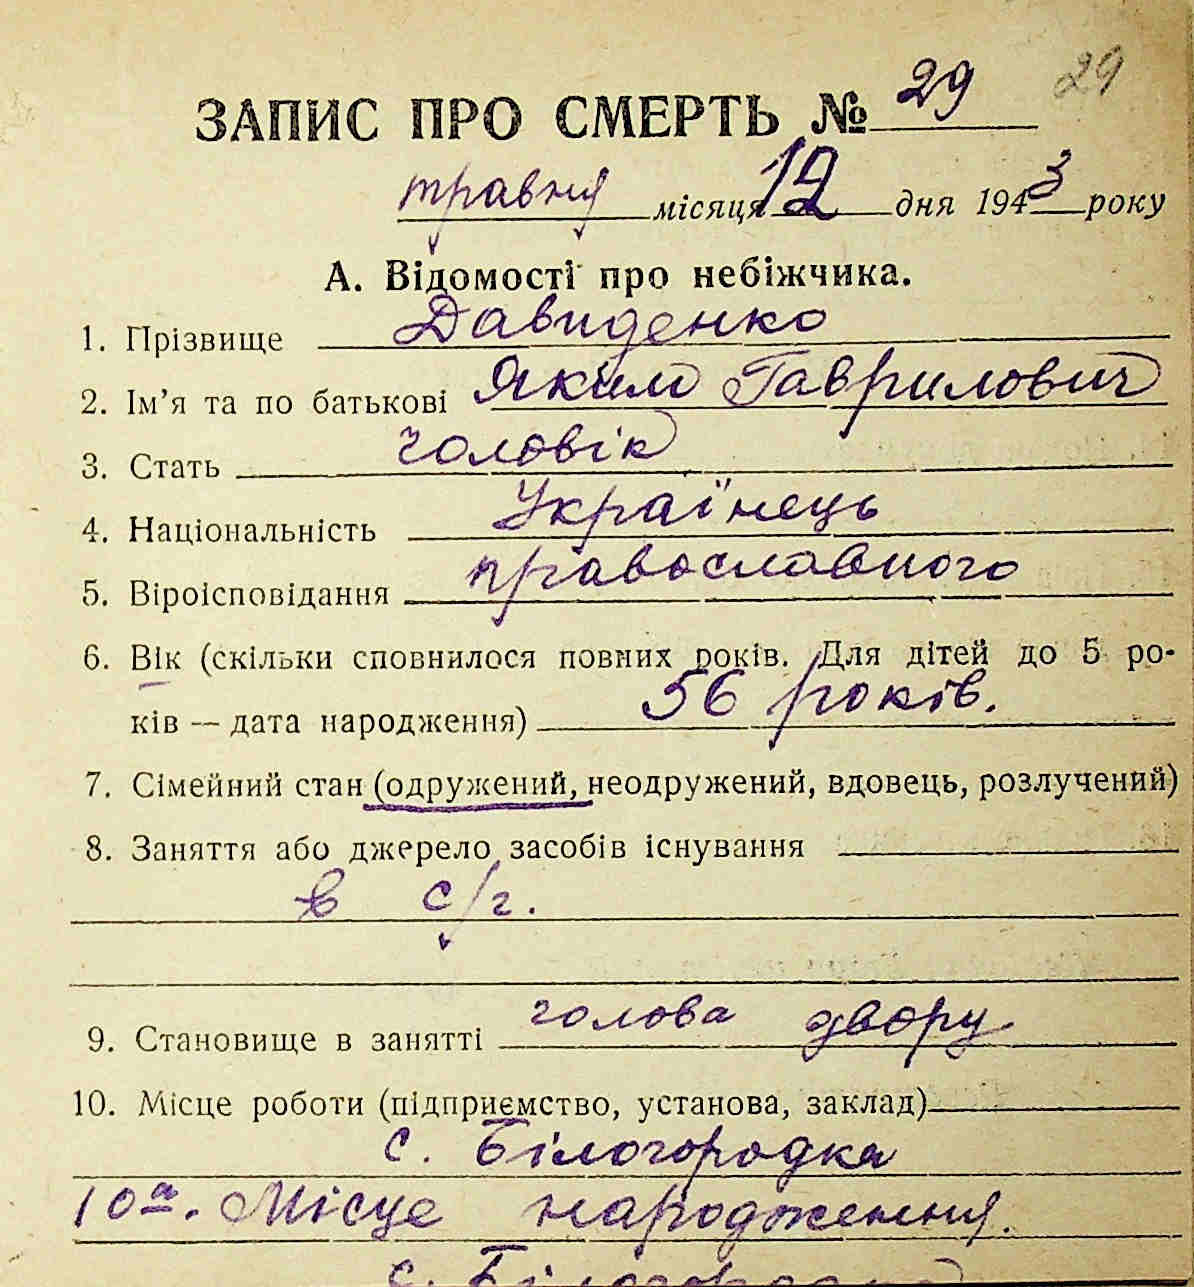 29
ЗАПИС ПРО СМЕРТЬ № 29
травня місяця 12 дня 1943 року
А. Відомості про небіжчика.
1. Прізвище Давиденко
2. Ім'я та по батькові Яким Гаврилович
3. Стать чоловік
4. Національність Українець
5. Віроісповідання православного
6. Вік (скільки сповнилося повних років. Для дітей до 5 ро-
ків — дата народження) 56 років.
7. Сімейний стан (одружений, неодружений, вдовець, розлучений)
8. Заняття або джерело засобів існування
в с/г.
9. Становище в занятті голова двору
10. Місце роботи (підприємство, установа, заклад)
с. Білогородка
10а. Місце народження.
с.